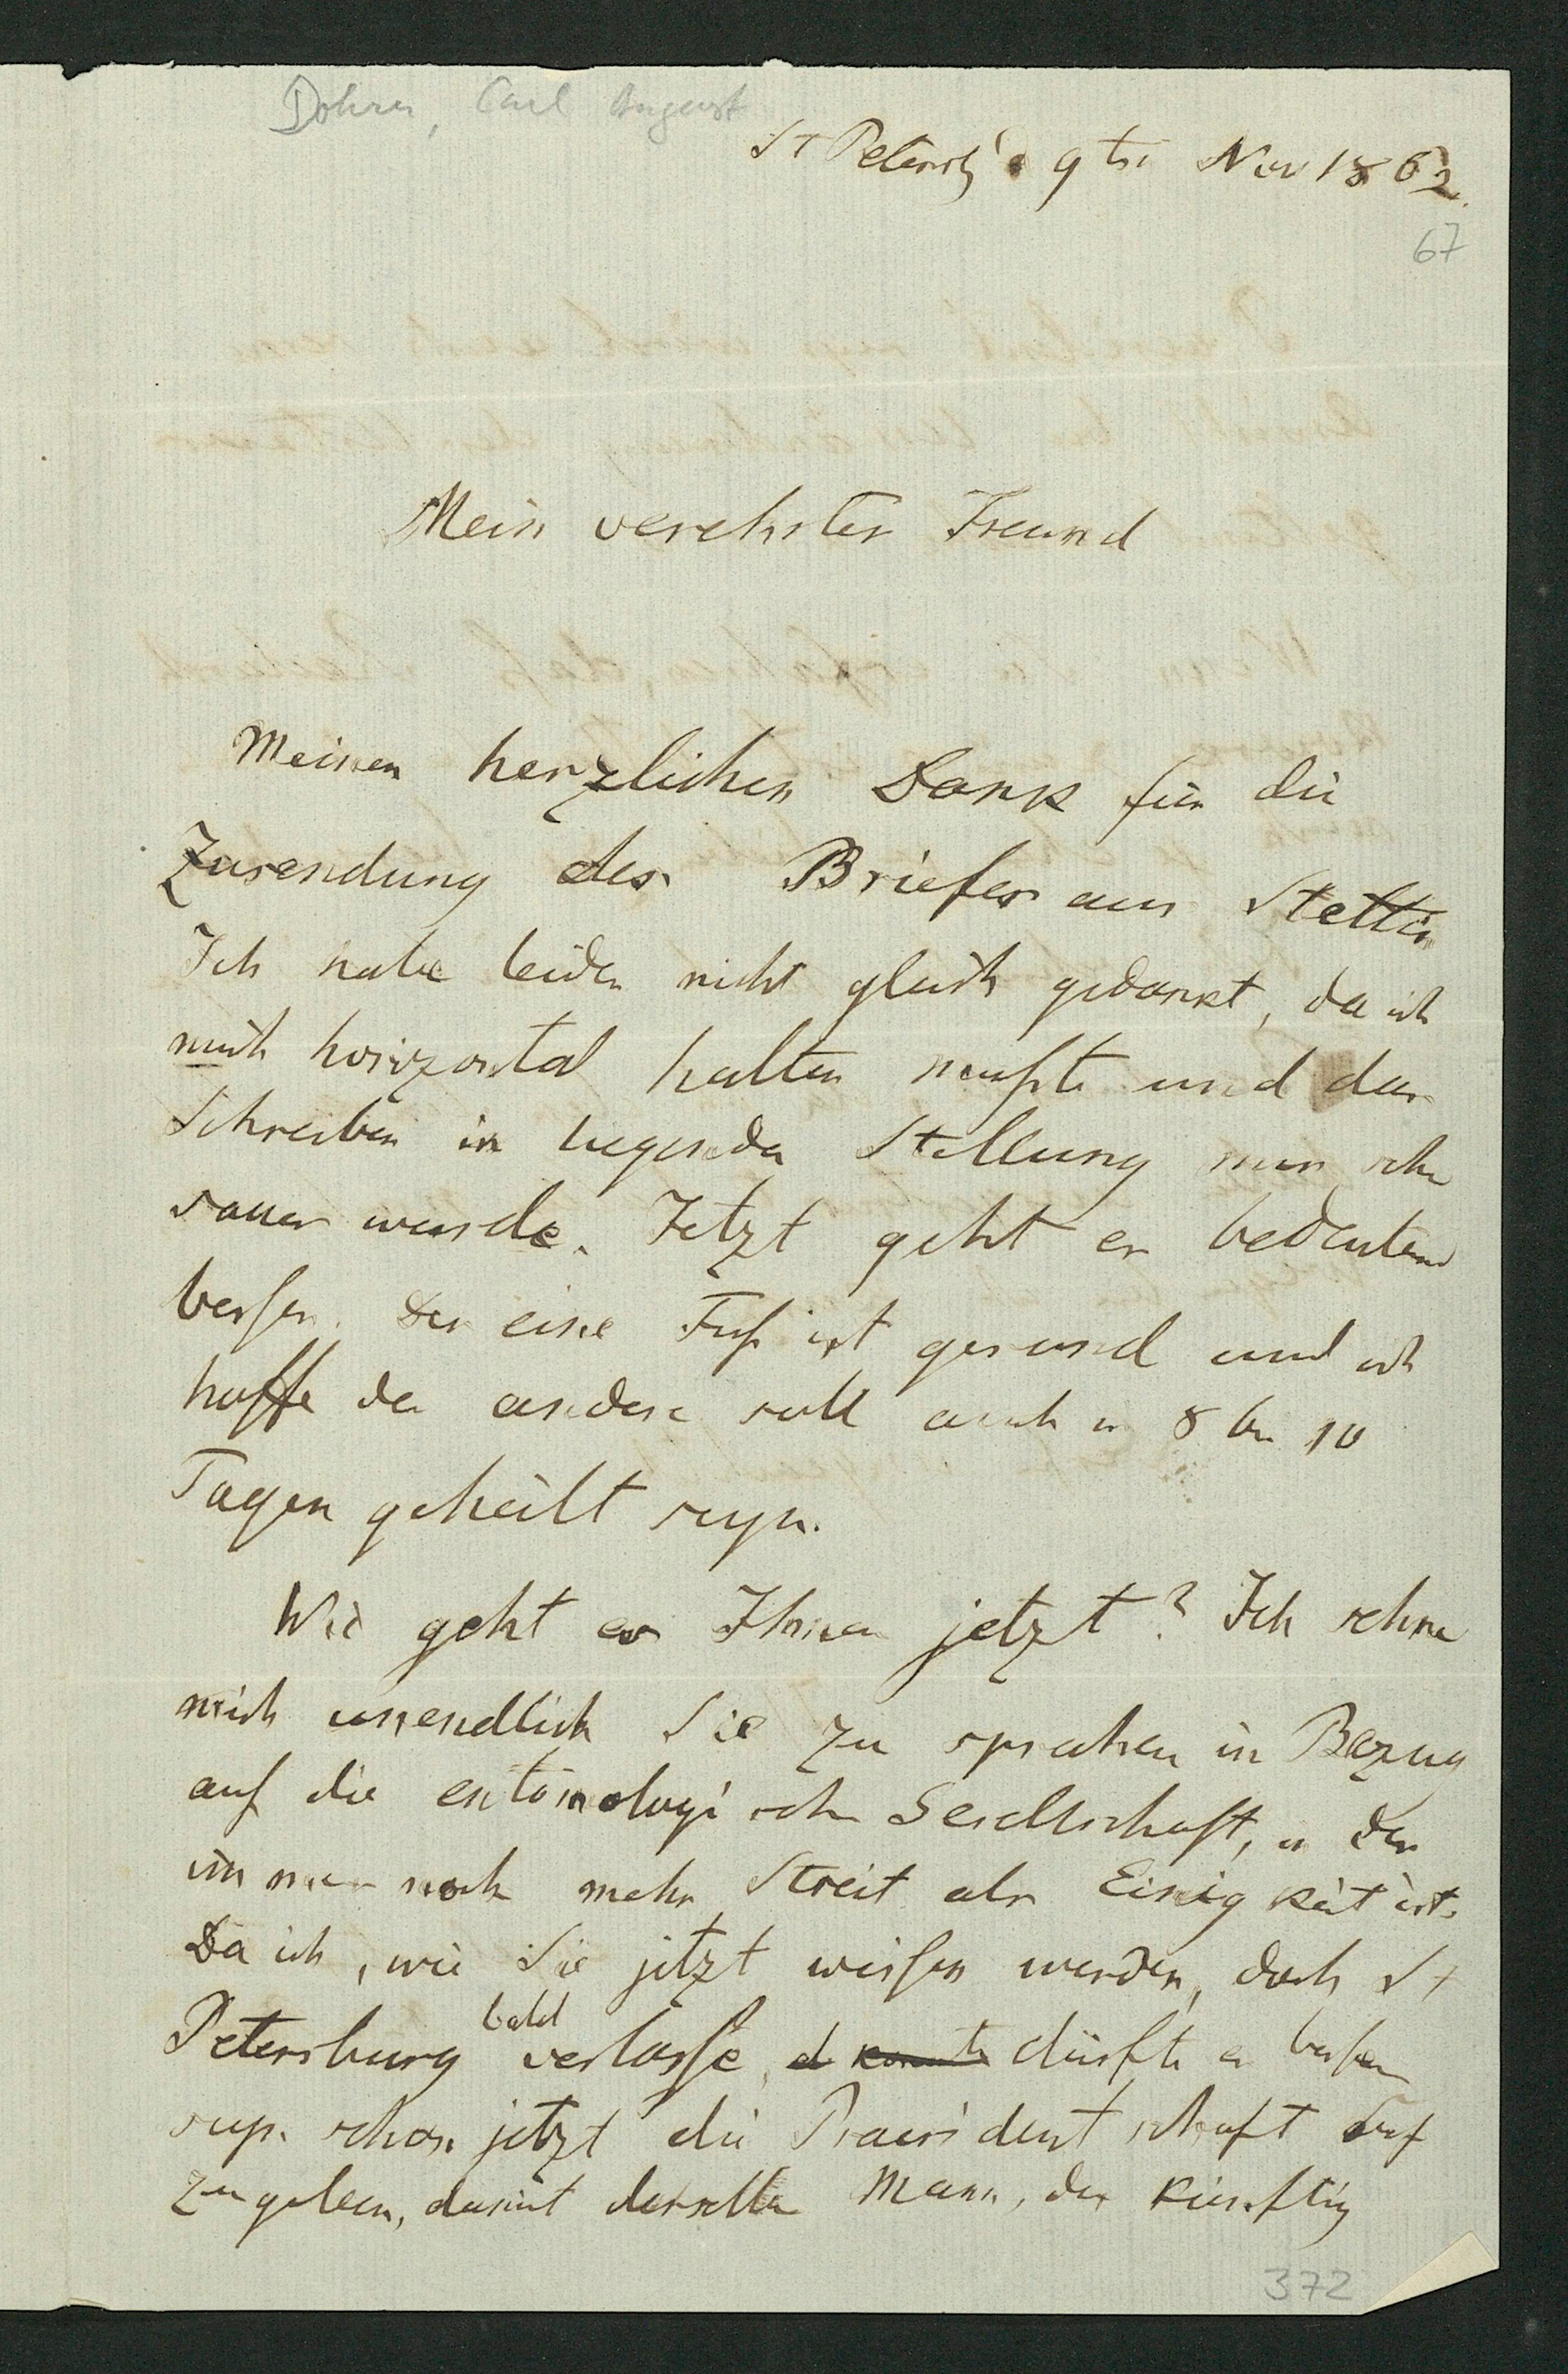 Dohrn, Carl August
St Petersb 9ten Nov 1862.
67
Mein verehrter Freund
Meinen herzlichen Dank für die
Zusendung des Briefes aus Stettin
Ich habe leider nicht gleich gedankt, da ich
mich horizontal halten mußte und das
Schreiben in liegender Stellung mir sehr
sauer wurde. Jetzt geht es bedeutend
besser. Der eine Fuß ist gesund und ich
hoffe der andere soll auch in 8 bis 10
Tagen geheilt seyn.
Wie geht es Ihnen jetzt? Ich sehne
mich unendlich Sie zu sprechen in Bezug
auf die entomologische Gesellschaft, in der
immer noch mehr Streit als Einigkeit ist.
Da ich, wie Sie jetzt wissen werden, doch St
Petersburg bald verlasse, d konnte dürfte es besser
seyn schon jetzt die Praesidentschaft auf
zugeben, damit derselbe Mann, der künftig
372